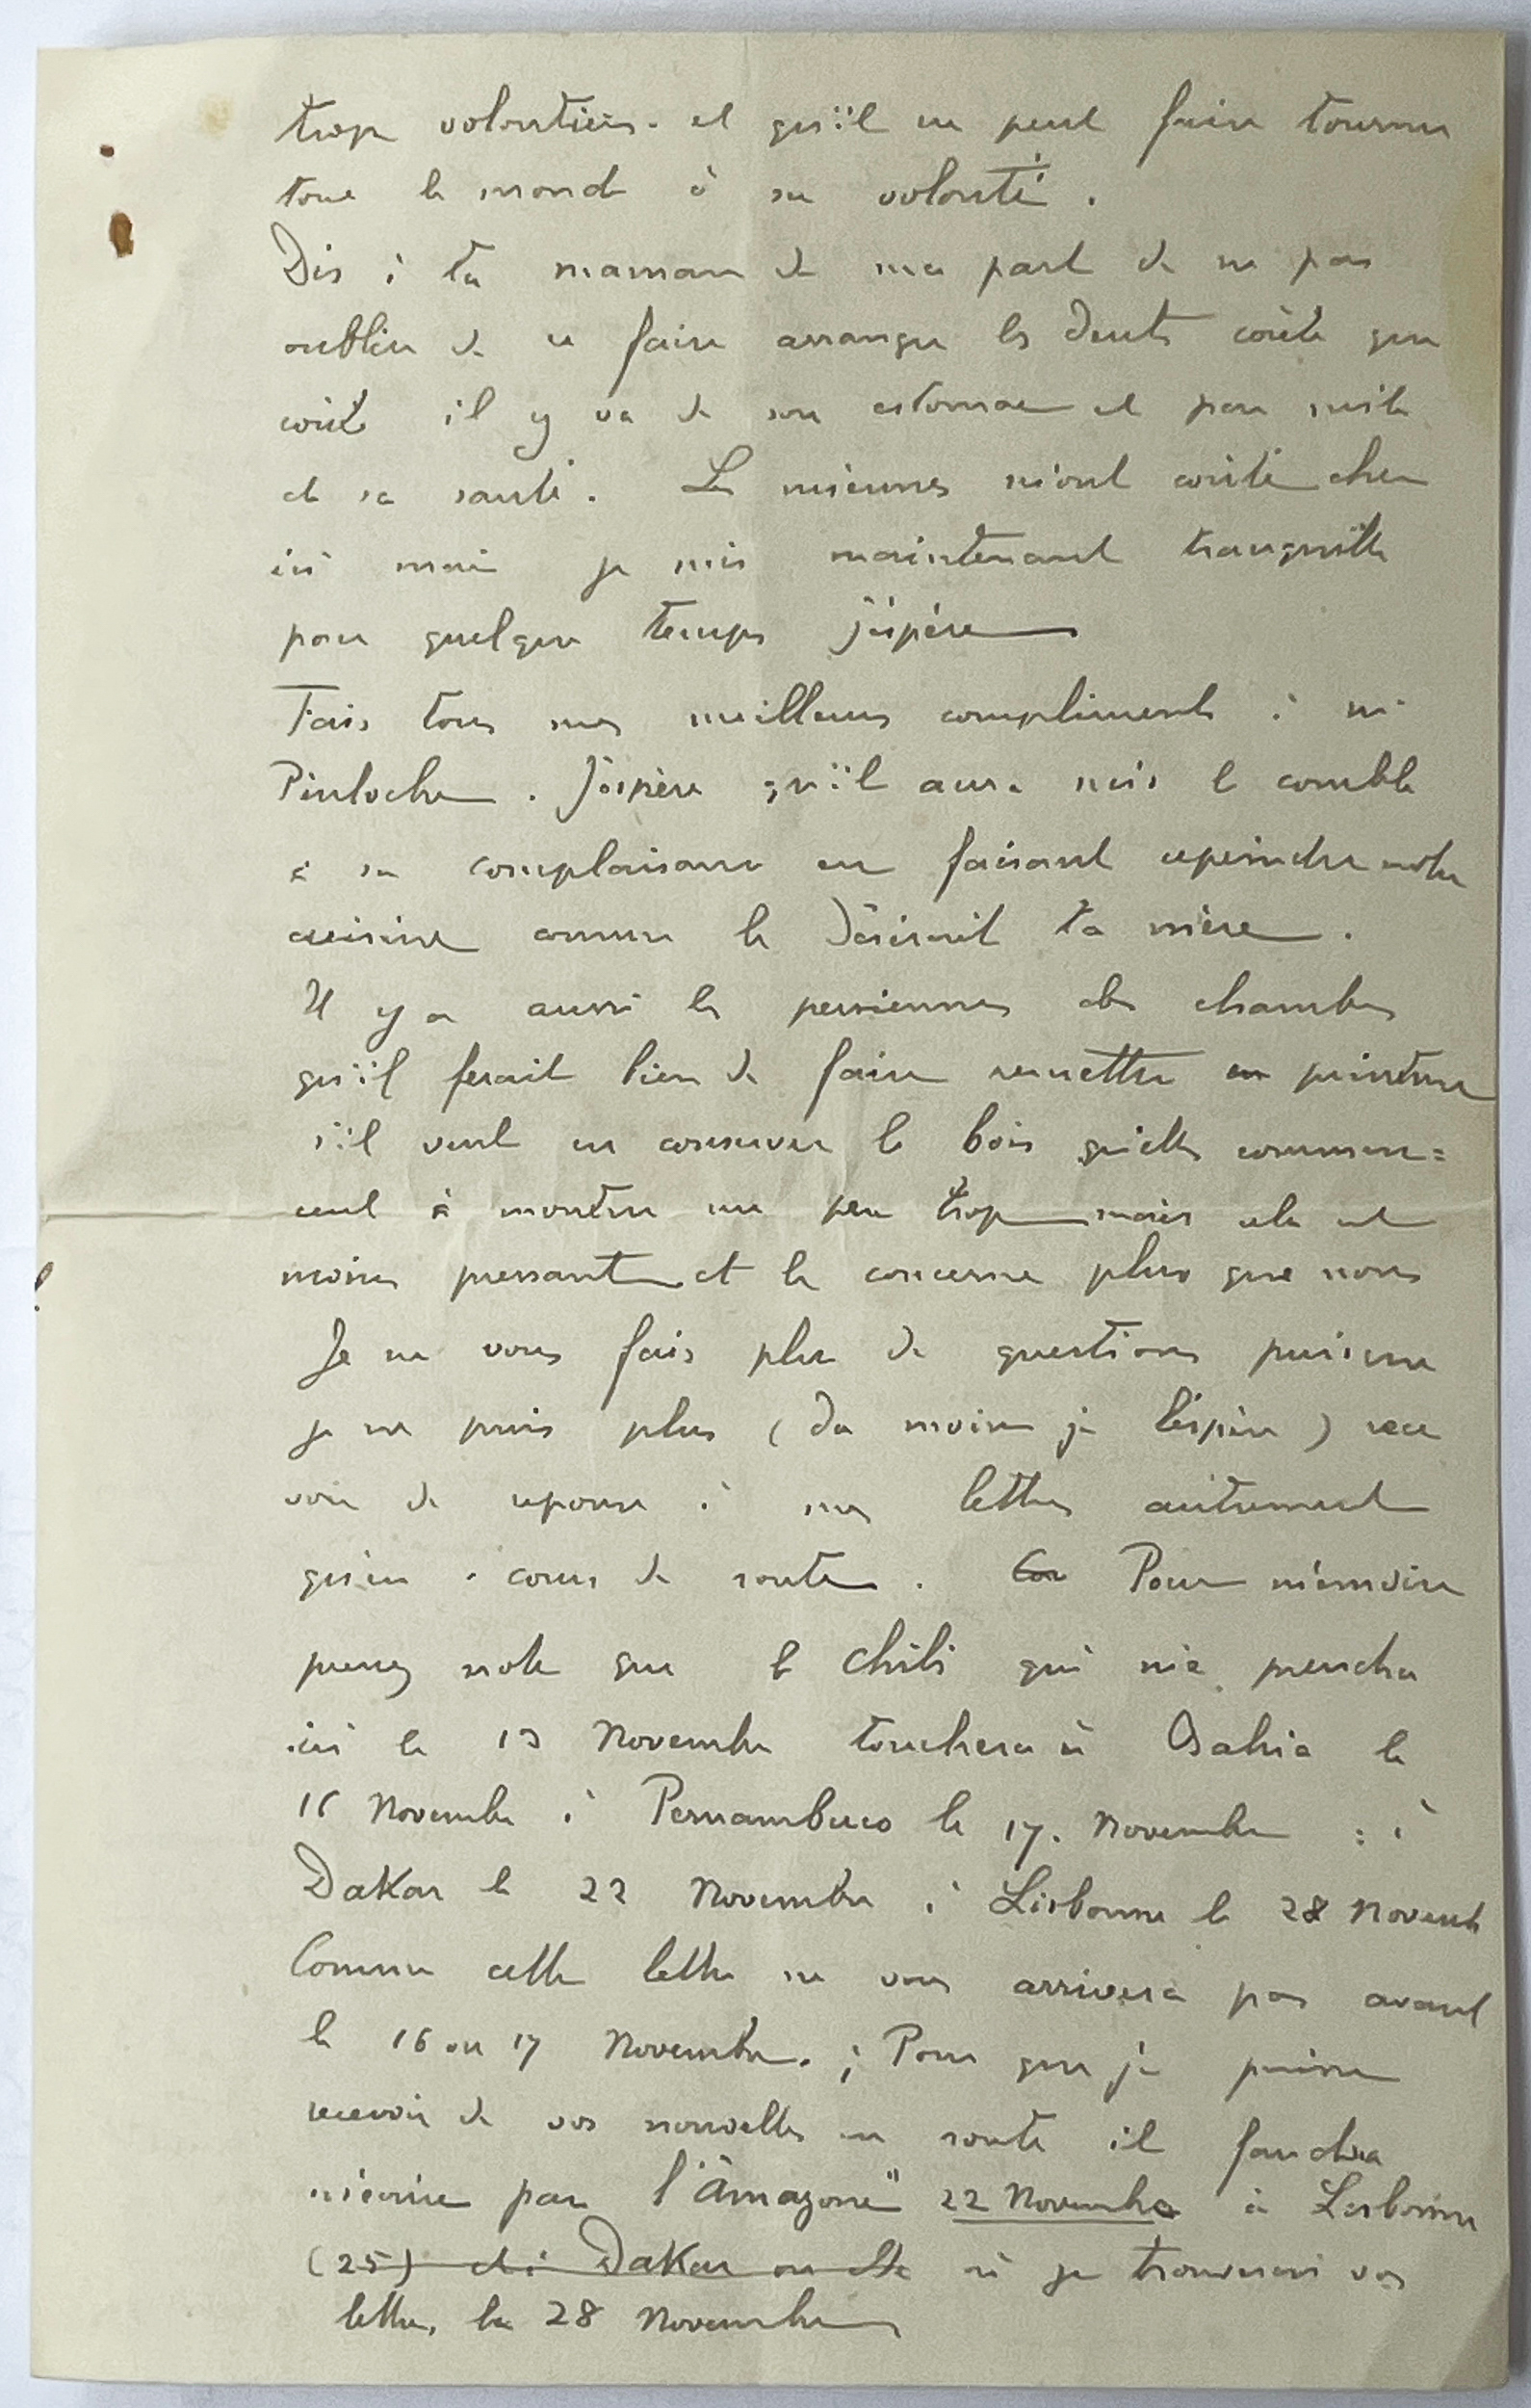 trop volontiers. et qu'il ne peut faire tourner
tout le monde à sa volonté.
Dis à ta maman de ma part de ne pas
oublier de se faire arranger les dents coûte que
coûte il y va de son estomac et par suite
de sa santé. Les miennes m'ont coûté cher
ici mais je suis maintenant tranquille
pour quelque temps j'espère
Fais tous mes meilleurs compliments à Mr
Pinloche. J'espère qu'il aura mis le comble
à sa complaisance en faisant repeindre notre
cuisine comme le désirait ta mère.
Il y a aussi les persiennes des chambres
qu'il ferait bien de faire remettre en peinture
s'il veut en conserver le bois qu'elles commen=
cent à montrer un peu trop mais cela est
moins pressant et le concerne plus que nous
Je ne vous fais plus de questions puisque
je ne puis plus (du moins je l'espère) rece
voir de réponse à mes lettres autrement
qu'en cours de route. Car Pour mémoire
prenez note que le Chili qui me prendra
ici le 13 Novembre touchera à Bahia le
16 Novembre à Pernambuco le 17. Novembre : à
Dakar le 22 Novembre à Lisbonne le 28 Novemb
Comme cette lettre ne vous arrivera pas avant
le 16 ou 17 Novembre. ; Pour que je puisse
recevoir de vos nouvelles en route il faudra
m'écrire par l'"Amazone" 22 Novembre à Lisbonne
(25) et à Dakar où je trouverai vos
lettres, le 28 Novembre